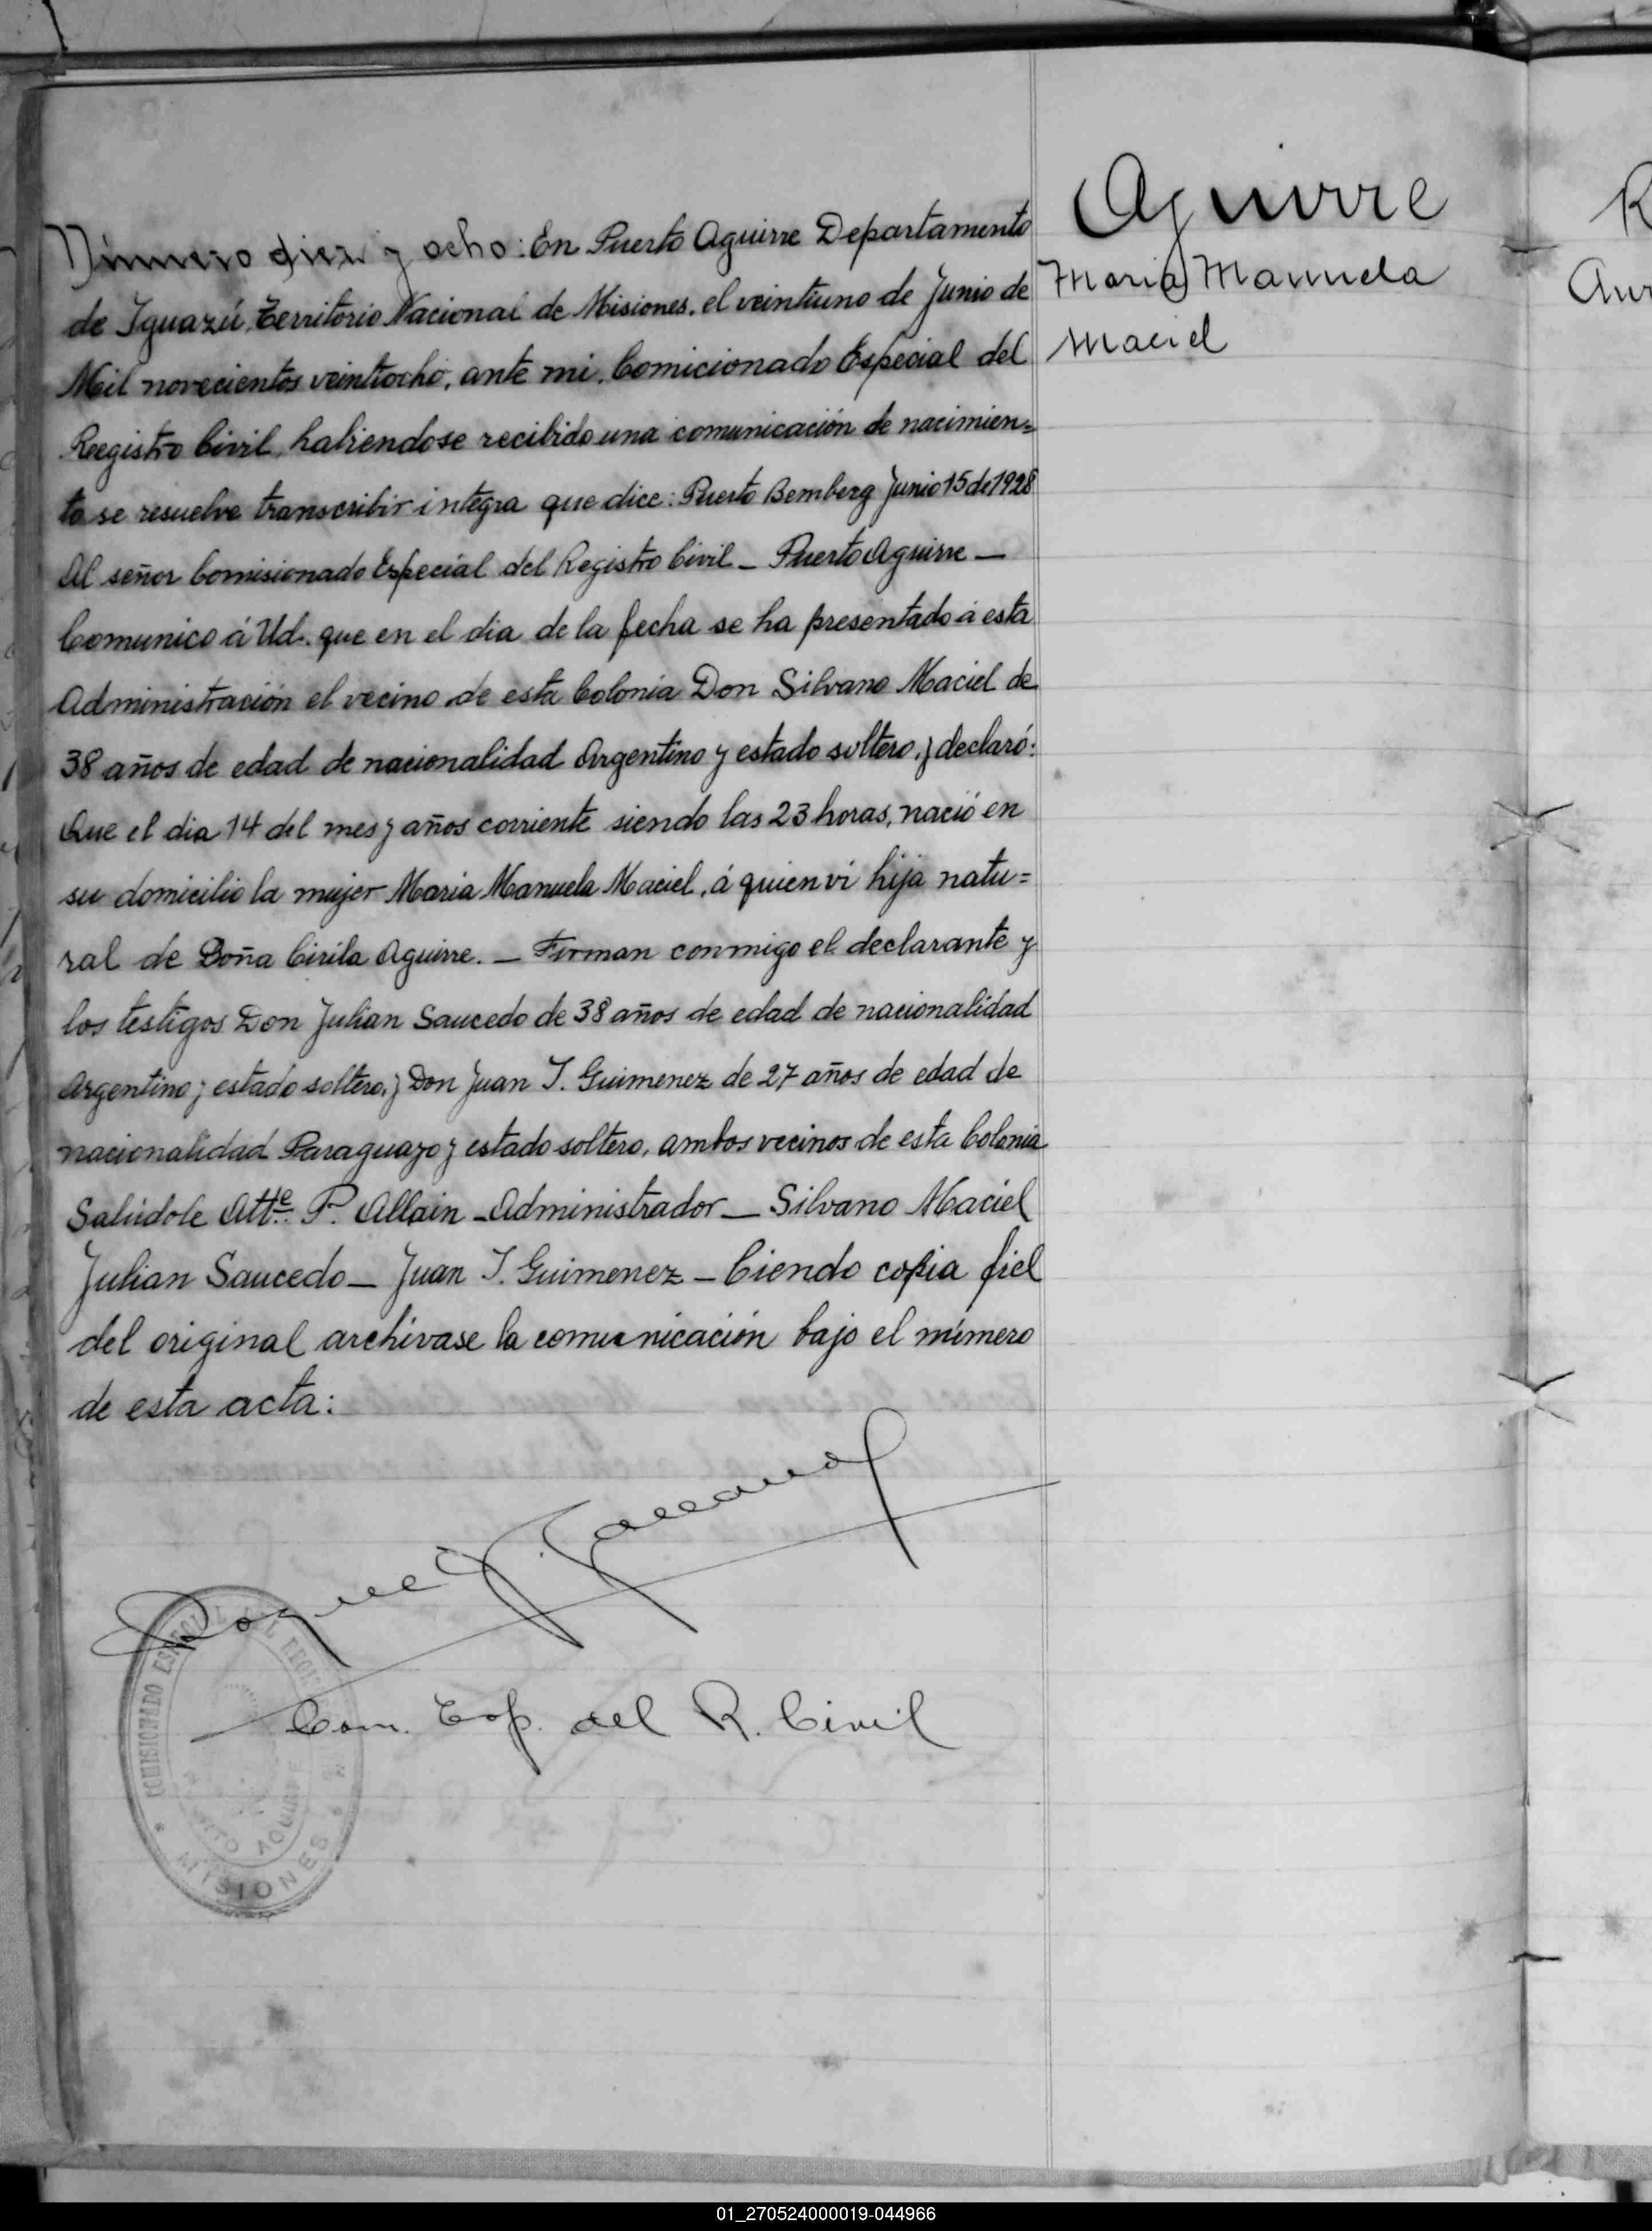 Número diez y ocho: En Puerto Aguirre Departamento
de Iguazú, Territorio Nacional de Misiones. el veintiuno de Junio de
Mil novecientos veintiocho, ante mi. Comicionado Especial del
Registro Civil, habiendose recibido una comunicación de nacimien=
to se resuelve transcribir integra que dice: Puerto Bemberg Junio 15 de 1928
Al señor Comisionado Especial del Registro Civil _ Puerto Aguirre _
Comunico á Ud. que en el dia de la fecha se ha presentado á esta
Administración el vecino de esta Colonia Don Silvano Maciel de
38 años de edad de nacionalidad Argentino y estado soltero, y declaró:
Que el dia 14 del mes y años corriente siendo las 23 horas, nació en
su domicilio la mujer Maria Manuela Maciel, á quien vi hija natu=
ral de Doña Cirila Aguirre. _ Firman conmigo el declarante y
los testigos Don Julian Saucedo de 38 años de edad de nacionalidad
Argentino y estado soltero, y Don Juan I. Guimenez de 27 años de edad de
nacionalidad Paraguayo y estado soltero, ambos vecinos de esta Colonia
Salúdole Atte. P. Allain _ Administrador _ Silvano Maciel
Julian Saucedo _ Juan I. Guimenez _ Ciendo copia fiel
del original archívase la comunicación bajo el número
de esta acta:
Com. Esp. del R. Civil
COMISIONADO ESPECIAL DEL
PUERTO AGUIRRE
MISIONES
Aguirre
Maria Manuela
Maciel
R
01_270524000019-044966